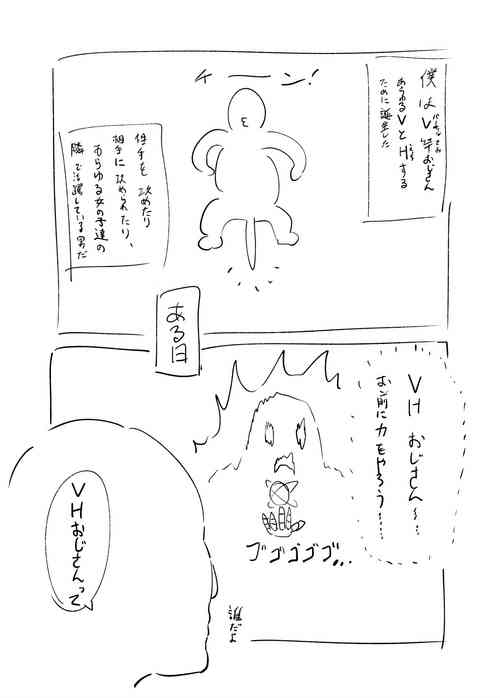 僕はV竿おじさん
あらゆるVとHする
ために誕生した
チーン!
相手を攻めたり
相手に攻められたり、
あらゆる女の子達の
隣で活躍している男だ
ある日
VHおじさん〜…
お前に力をやろう……
ゴゴゴゴゴ...
VHおじさんって
誰だよ